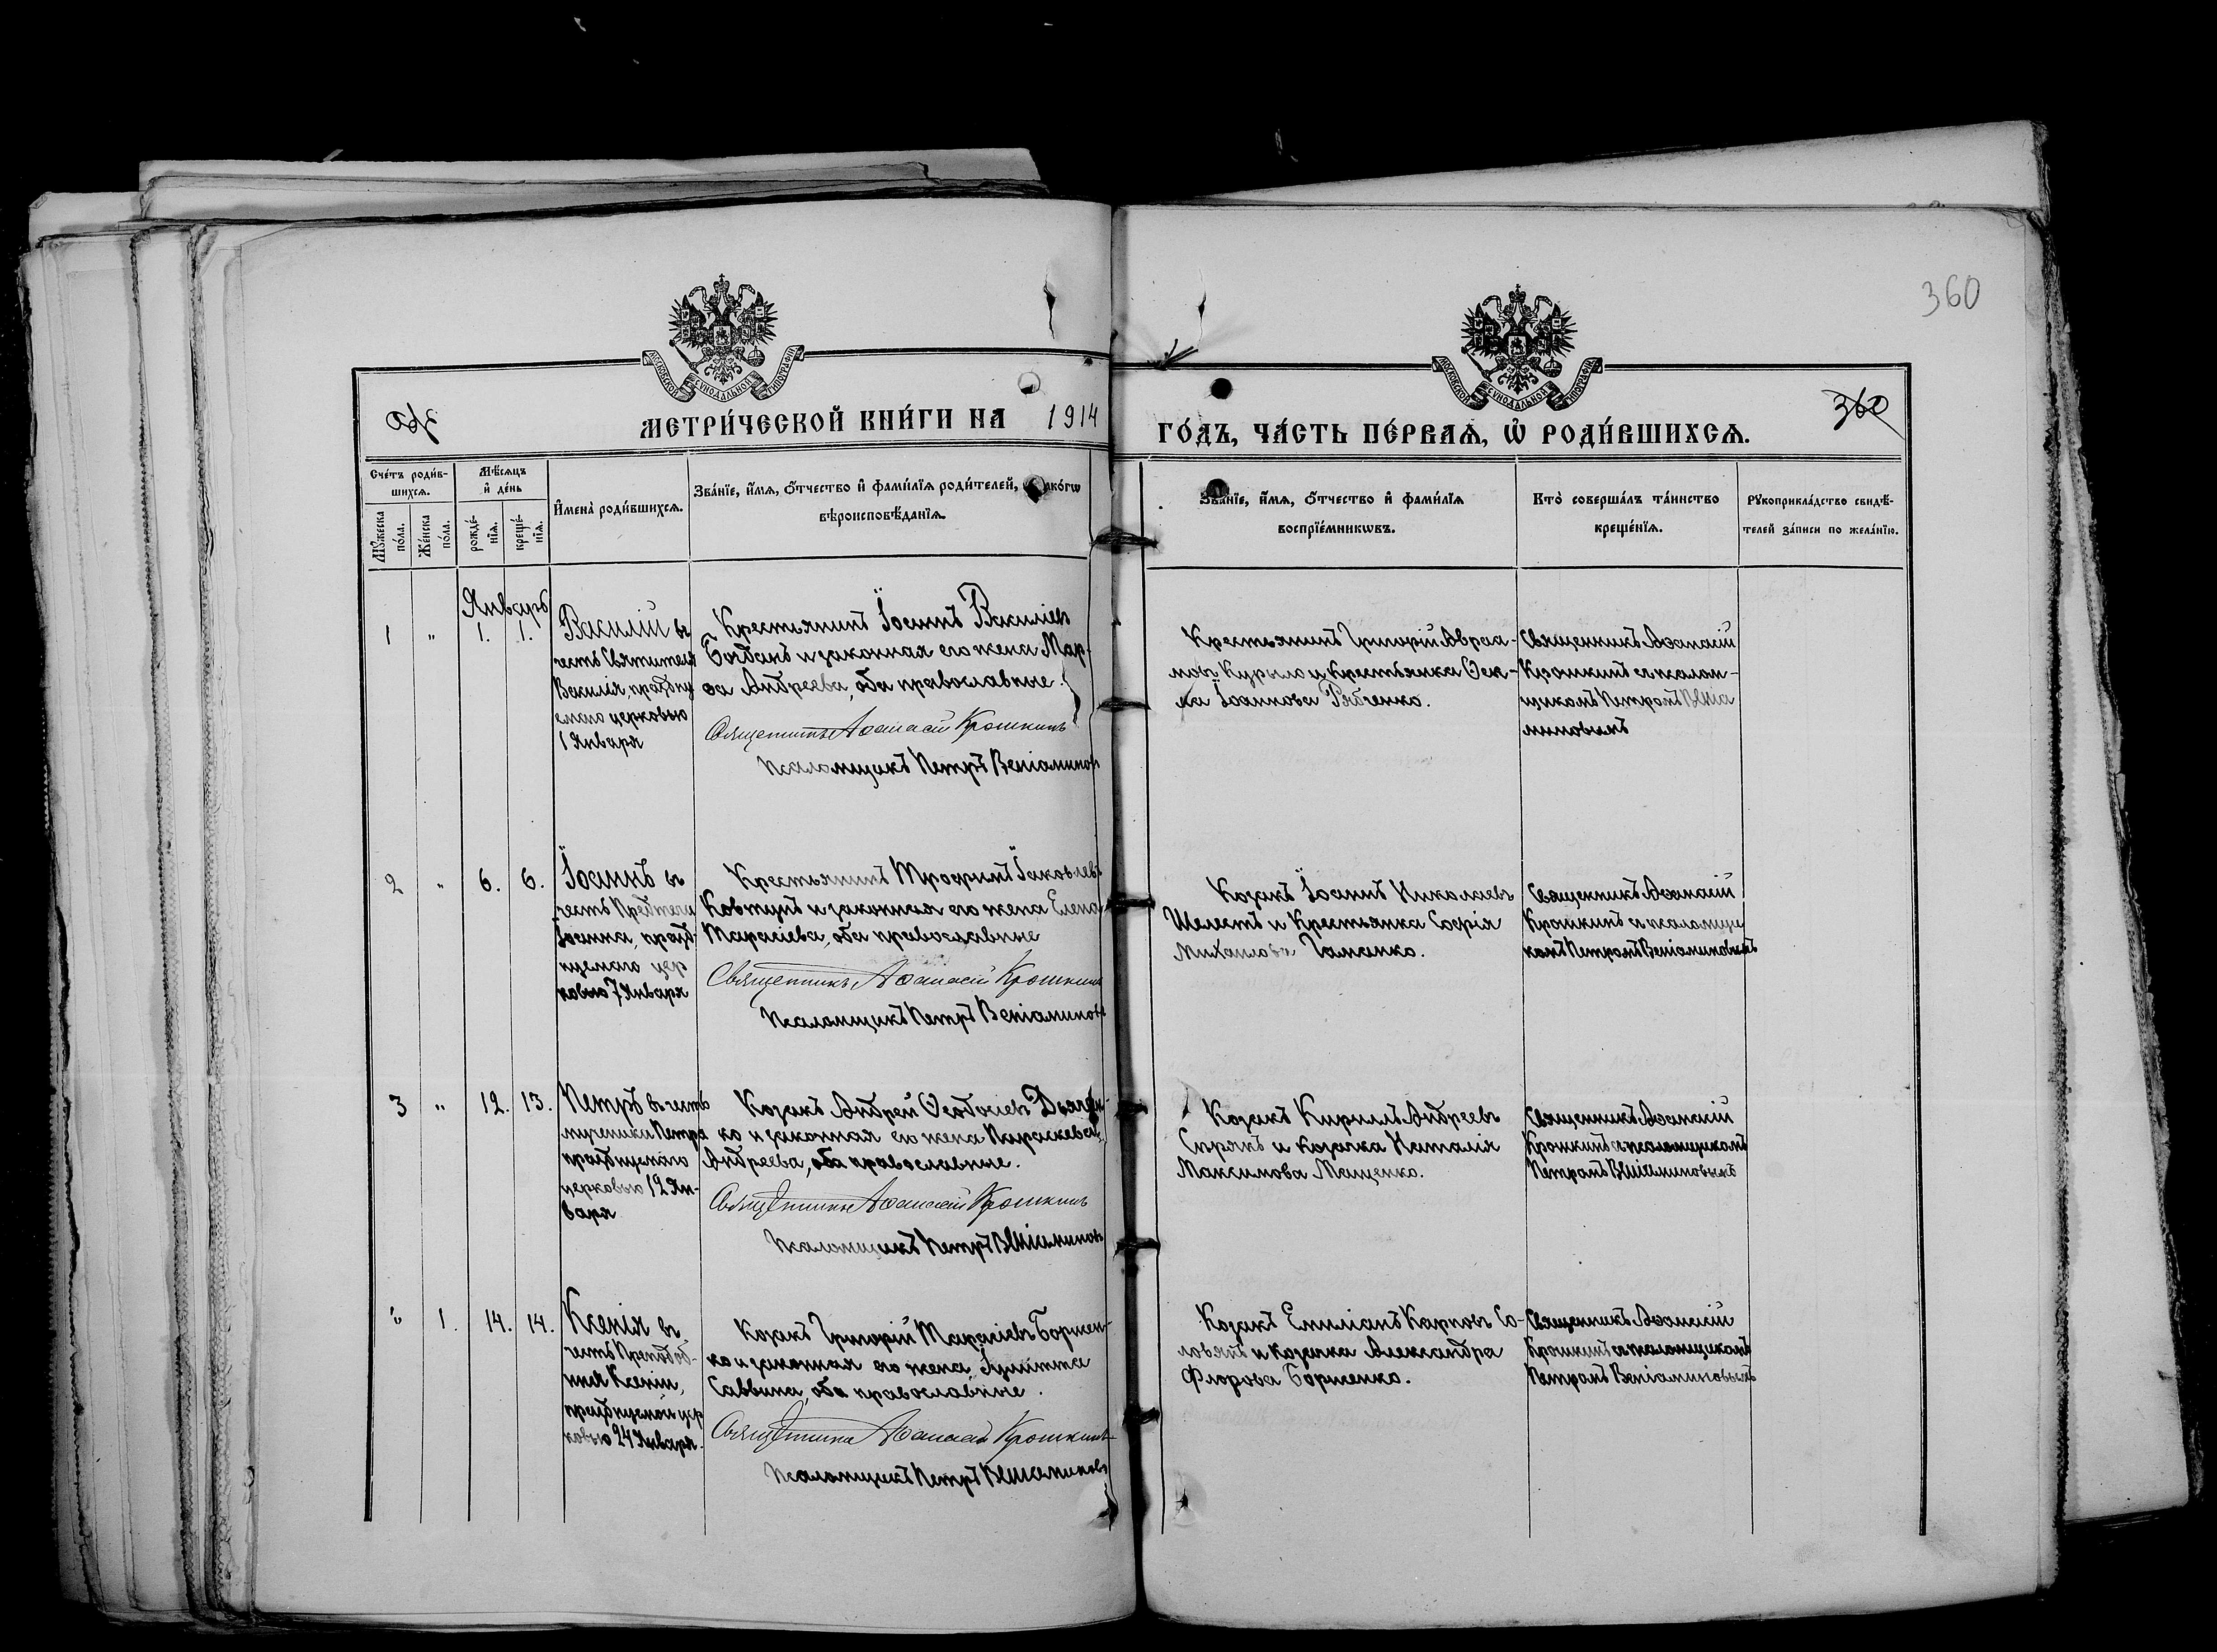 360
МОСКОВСКОЙ СѴНОДАЛЬНОЙ ТИПОГРАФІИ
МОСКОВСКОЙ СѴНОДАЛЬНОЙ ТИПОГРАФІИ
МЕТРИ́ЧЕСКОЙ КНИ́ГИ НА 1914
ГО́ДЪ, ЧА́СТЬ ПЕ́РВАѦ, Ѡ҆ РОДИ́ВШИХСѦ.
360
Сче́тъ роди́в-
шихсѧ.
Мꙋ́жеска по́ла.
Же́нска по́ла.
Мѣ́сѧцъ
и҆ де́нь
рожде́-
нїѧ.
креще́-
нїѧ.
И҆мена̀ роди́вшихсѧ.
Зва́нїе, и҆́мѧ, ѻ҆́тчество и҆ фами́лїѧ роди́телей, и҆ како́гѡ
вѣроисповѣ́данїѧ.
Зва́нїе, и҆́мѧ, ѻ҆́тчество и҆ фами́лїѧ
воспрїе́мникѡвъ.
Кто̀ соверша́лъ та́инство
креще́нїѧ.
Рꙋкоприкла́дство свидѣ́-
телей за́писи по жела́нїю.
Январь
1 " 1. 1.
Василій въ
честь Святителя
Василія, праздну
емаго церковью
1 Января
Крестьянинъ Іоаннъ Василіевъ
Богданъ и законная его жена Мар-
ѳа Андреева, оба православные.
Священникъ Аѳанасій Крошкинъ
Псаломщикъ Петръ Веніаминовъ
Крестьянинъ Григорій Авраа-
мовъ Курыло и крестьянка Ѳек-
ла Іоаннова Рябченко.
Священникъ Аѳанасій
Крошкинъ съ псалом-
щикомъ Петромъ Веніа
миновымъ
2 " 6. 6.
Іоаннъ въ
честь Предтечи
Іоанна, празд-
нуемаго цер
ковью 7 Января
Крестьянинъ Трофимъ Іаковлевъ
Ковтунъ и законная его жена Елена
Тарасіева, оба православные
Священникъ Аѳанасій Крошкинъ
Псаломщикъ Петръ Веніаминовъ
Козакъ Іоаннъ Николаевъ
Шелестъ и крестьянка Софія
Михаилова Гаманко.
Священникъ Аѳанасій
Крошкинъ съ псаломщи
комъ Петромъ Веніаминовымъ
3 " 12. 13.
Петръ въ честь
мученика Петра
празднуемаго
церковью 12 Ян-
варя
Козакъ Андрей Ѳеодосіевъ Дьячен-
ко и законная его жена Параскева
Андреева, оба православные.
Священникъ Аѳанасій Крошкинъ
Псаломщикъ Петръ Веніаминовъ
Козакъ Кириллъ Андреевъ
и козачка Наталія
Максимова Мащенко.
Священникъ Аѳанасій
Крошкинъ съ псаломщикомъ
Петромъ Веніаминовымъ
" 1. 14. 14.
Ксенія въ
честь Преподоб-
ныя Ксеніи,
празднуемой цер
ковью 24 Января.
Козакъ Григорій Тарасіевъ Борщен-
ко и законная его жена Іулитта
Саввина, оба православные.
Священникъ Аѳанасій Крошкинъ
Псаломщикъ Петръ Веніаминовъ
Козакъ Емиліанъ Карповъ Со-
ловей и козачка Александра
Флорова Борщенко.
Священникъ Аѳанасій
Крошкинъ съ псаломщикомъ
Петромъ Веніаминовымъ